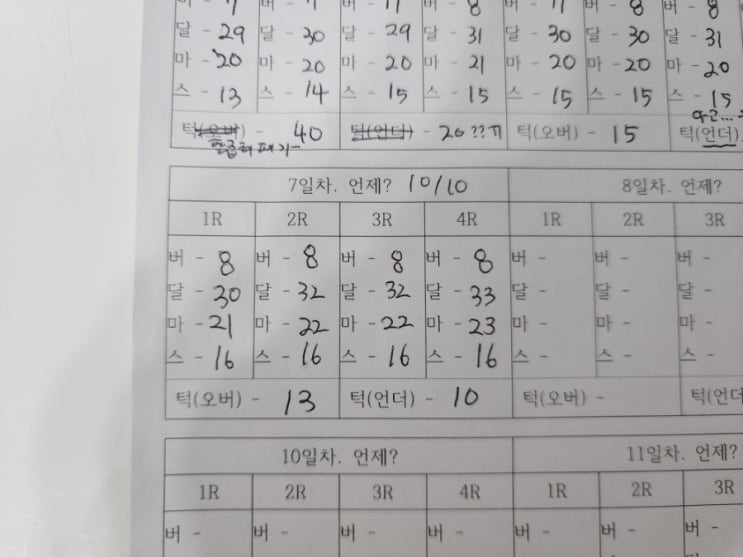 달 - 29 달 - 30 달 - 29 달 - 31 달 - 30 달 - 30 달 - 31
마 - 20 마 - 20 마 - 20 마 - 21 마 - 20 마 - 20 마 - 20
스 - 13 스 - 14 스 - 15 스 - 15 스 - 15 스 - 15 스 - 15
턱(오버) - 40 턱(언더) - 20 ??ㄲ 턱(오버) - 15 턱(언더)
7일차. 언제? 10/10 8일차. 언제?
1R 2R 3R 4R 1R 2R 3R
버 - 8 버 - 8 버 - 8 버 - 8 버 - 버 - 버 -
달 - 30 달 - 32 달 - 32 달 - 33 달 - 달 - 달 -
마 - 21 마 - 22 마 - 22 마 - 23 마 - 마 - 마 -
스 - 16 스 - 16 스 - 16 스 - 16 스 - 스 - 스 -
턱(오버) - 13 턱(언더) - 10 턱(오버) - 턱(언더
10일차. 언제? 11일차. 언제?
1R 2R 3R 4R 1R 2R 3R
버 - 버 - 버 - 버 - 버 - 버 - 버 -